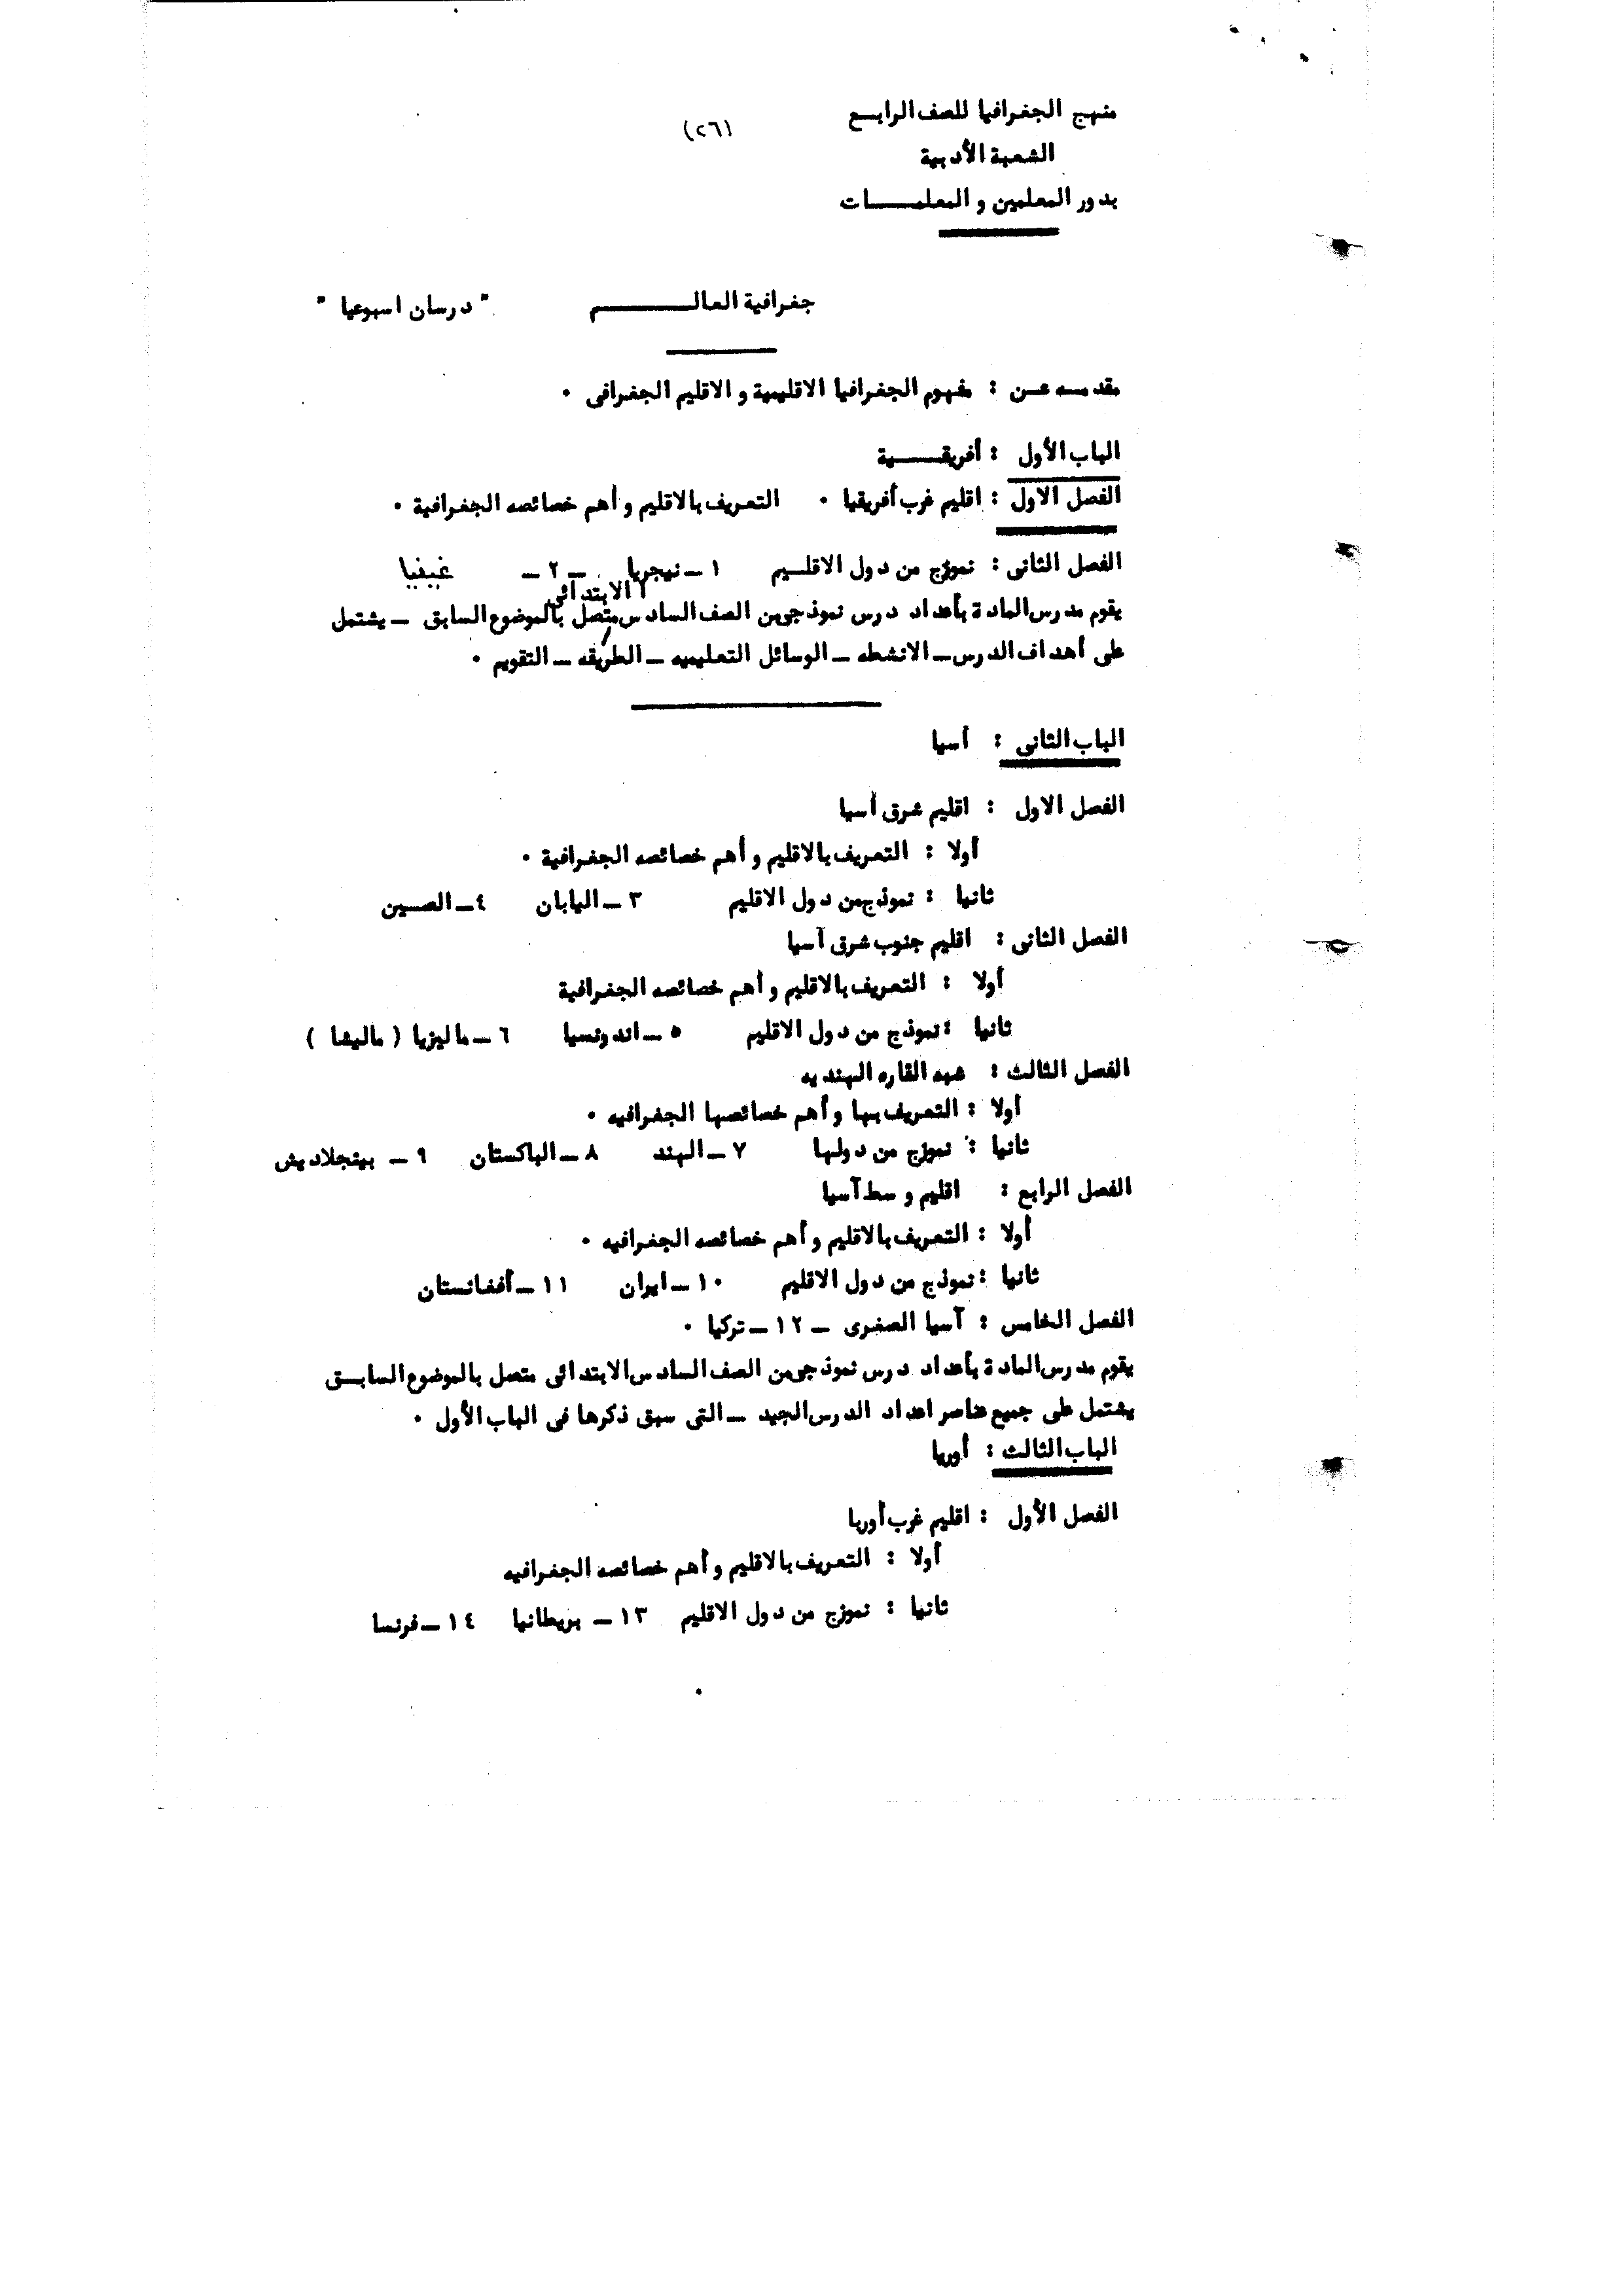 منهج الجغرافيا للصف الرابع
(٢٦)
الشعبة الأدبية
بدور المعلمين و المعلمات
جغرافية العالم " درسان اسبوعيا "
مقدمه عن : مفهوم الجغرافيا الاقليمية و الاقليم الجغرافى .
الباب الأول : أفريقية
الفصل الاول : اقليم غرب أفريقيا . التعريف بالاقليم و أهم خصائصه الجغرافية .
الفصل الثانى : نموزج من دول الاقليم ١ - نيجريا - ٢ - غينيا
الابتدائى
يقوم مدرس المادة بأعداد درس نموذجى من الصف السادس متصل بالموضوع السابق - يشتمل
على أهداف الدرس - الانشطه - الوسائل التعليميه - الطريقه - التقويم .
الباب الثانى : أسيا
الفصل الاول : اقليم شرق أسيا
أولا : التعريف بالاقليم و أهم خصائصه الجغرافية .
ثانيا : نموذج من دول الاقليم ٣ - اليابان ٤ - الصين
الفصل الثانى : اقليم جنوب شرق آسيا
أولا : التعريف بالاقليم و أهم خصائصه الجغرافية
ثانيا : نموذج من دول الاقليم ٥ - اندونسيا ٦ - ماليزيا ( ماليشا )
الفصل الثالث : شبه القاره الهنديه
أولا : التعريف بها و أهم خصائصها الجغرافيه .
ثانيا : نموزج من دولها ٧ - الهند ٨ - الباكستان ٩ - بينجلاديش
الفصل الرابع : اقليم وسط آسيا
أولا : التعريف بالاقليم و أهم خصائصه الجغرافيه .
ثانيا : نموذج من دول الاقليم ١٠ - ايران ١١ - أفغانستان
الفصل الخامس : آسيا الصغرى - ١٢ - تركيا .
يقوم مدرس المادة بأعداد درس نموذجى من الصف السادس الابتدائى متصل بالموضوع السابق
يشتمل على جميع عناصر اعداد الدرس الجيد - التى سبق ذكرها فى الباب الأول .
الباب الثالث : أوربا
الفصل الأول : اقليم غرب أوربا
أولا : التعريف بالاقليم و أهم خصائصه الجغرافيه
ثانيا : نموزج من دول الاقليم ١٣ - بريطانيا ١٤ - فرنسا